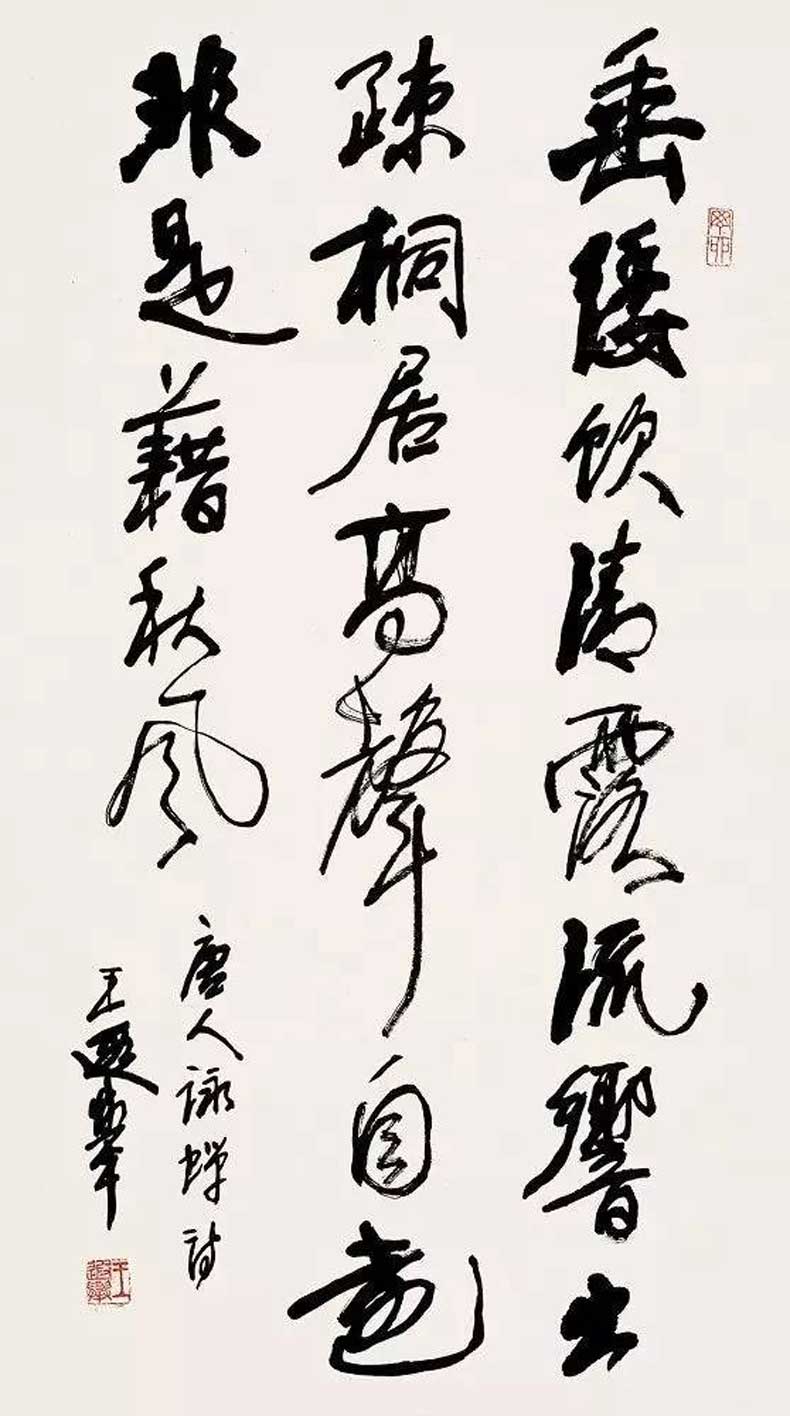 垂緌飲清露流響出
疎桐居高聲自遠
非是藉秋風
唐人詠蝉詩
王遐舉
王遐舉